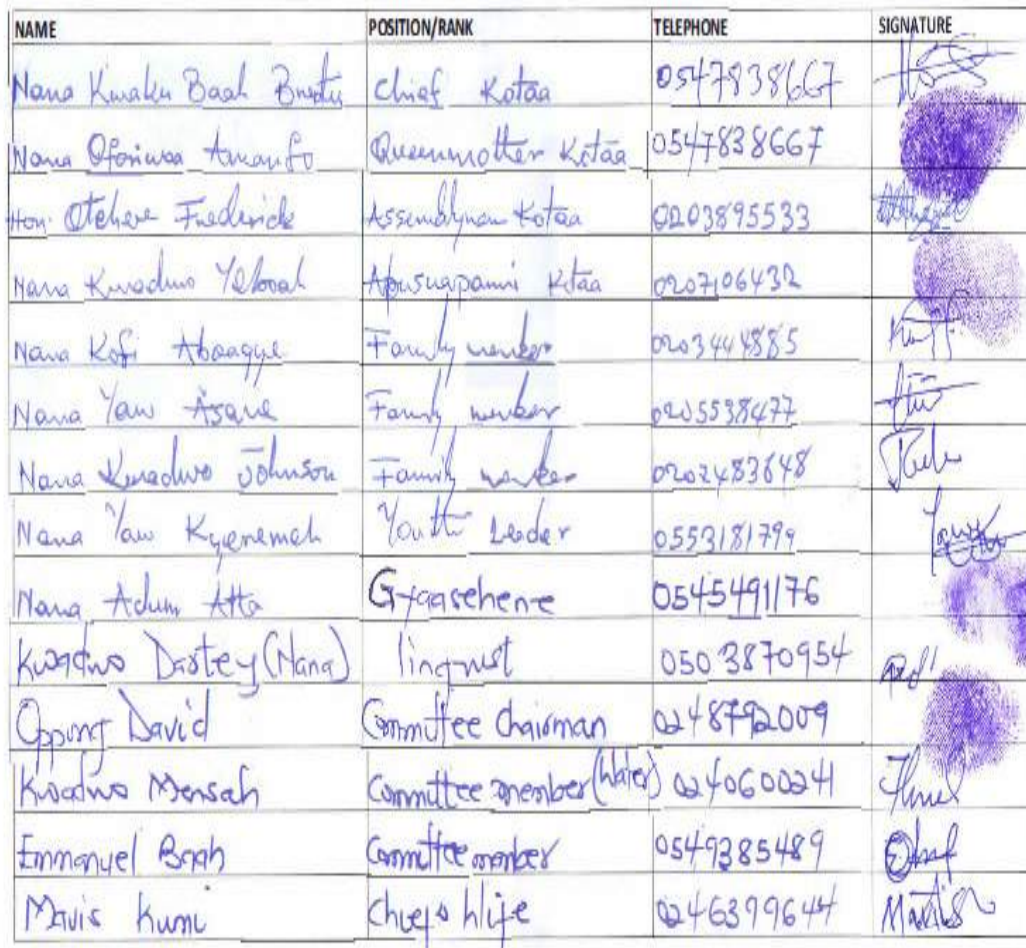 NAME POSITION/RANK TELEPHONE SIGNATURE
Nana Kwaku Baah Chief Kotaa 0547838667
Nana Oforiwaa Amanfo Queenmother Kotaa 0547838667
Hon. Otchere Frederick Assemblyman Kotaa 0203895533
Nana Kwadwo Yeboah Abusuapanni Kotaa 0207106432
Nana Kofi Aboagye Family member 0203444885
Nana Yaw Asare Family member 0205538477
Nana Kwadwo Johnson Family member 0202483648
Nana Yaw Kyeremeh Youth Leader 0553181799
Nana Adum Atta Gyaasehene 0545491176
Kwadwo Dartey (Nana) linguist 0503870954
Oppong David Committee Chairman 0248792009
Kwadwo Mensah Committee member (Water) 0240600241
Emmanuel Baah Committee member 0549385489
Mavis Kumi Chiefs Wife 0246399644